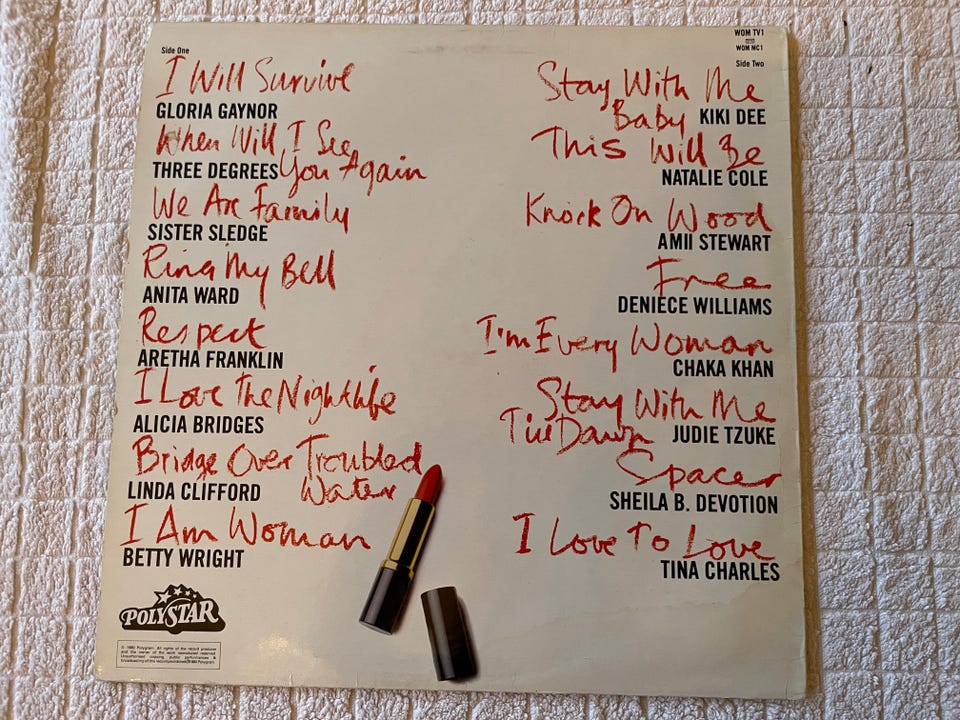 Side One
I Will Survive
GLORIA GAYNOR
When Will I See
THREE DEGREES You Again
We Are Family
SISTER SLEDGE
Ring My Bell
ANITA WARD
Respect
ARETHA FRANKLIN
I Love The Nightlife
ALICIA BRIDGES
Bridge Over Troubled
LINDA CLIFFORD Water
I Am Woman
BETTY WRIGHT
POLYSTAR
WOM TV1
WOM MC1
Side Two
Stay With Me
Baby KIKI DEE
This Will Be
NATALIE COLE
Knock On Wood
AMII STEWART
Free
DENIECE WILLIAMS
I'm Every Woman
CHAKA KHAN
Stay With Me
Till Dawn JUDIE TZUKE
Spacer
SHEILA B. DEVOTION
I Love To Love
TINA CHARLES